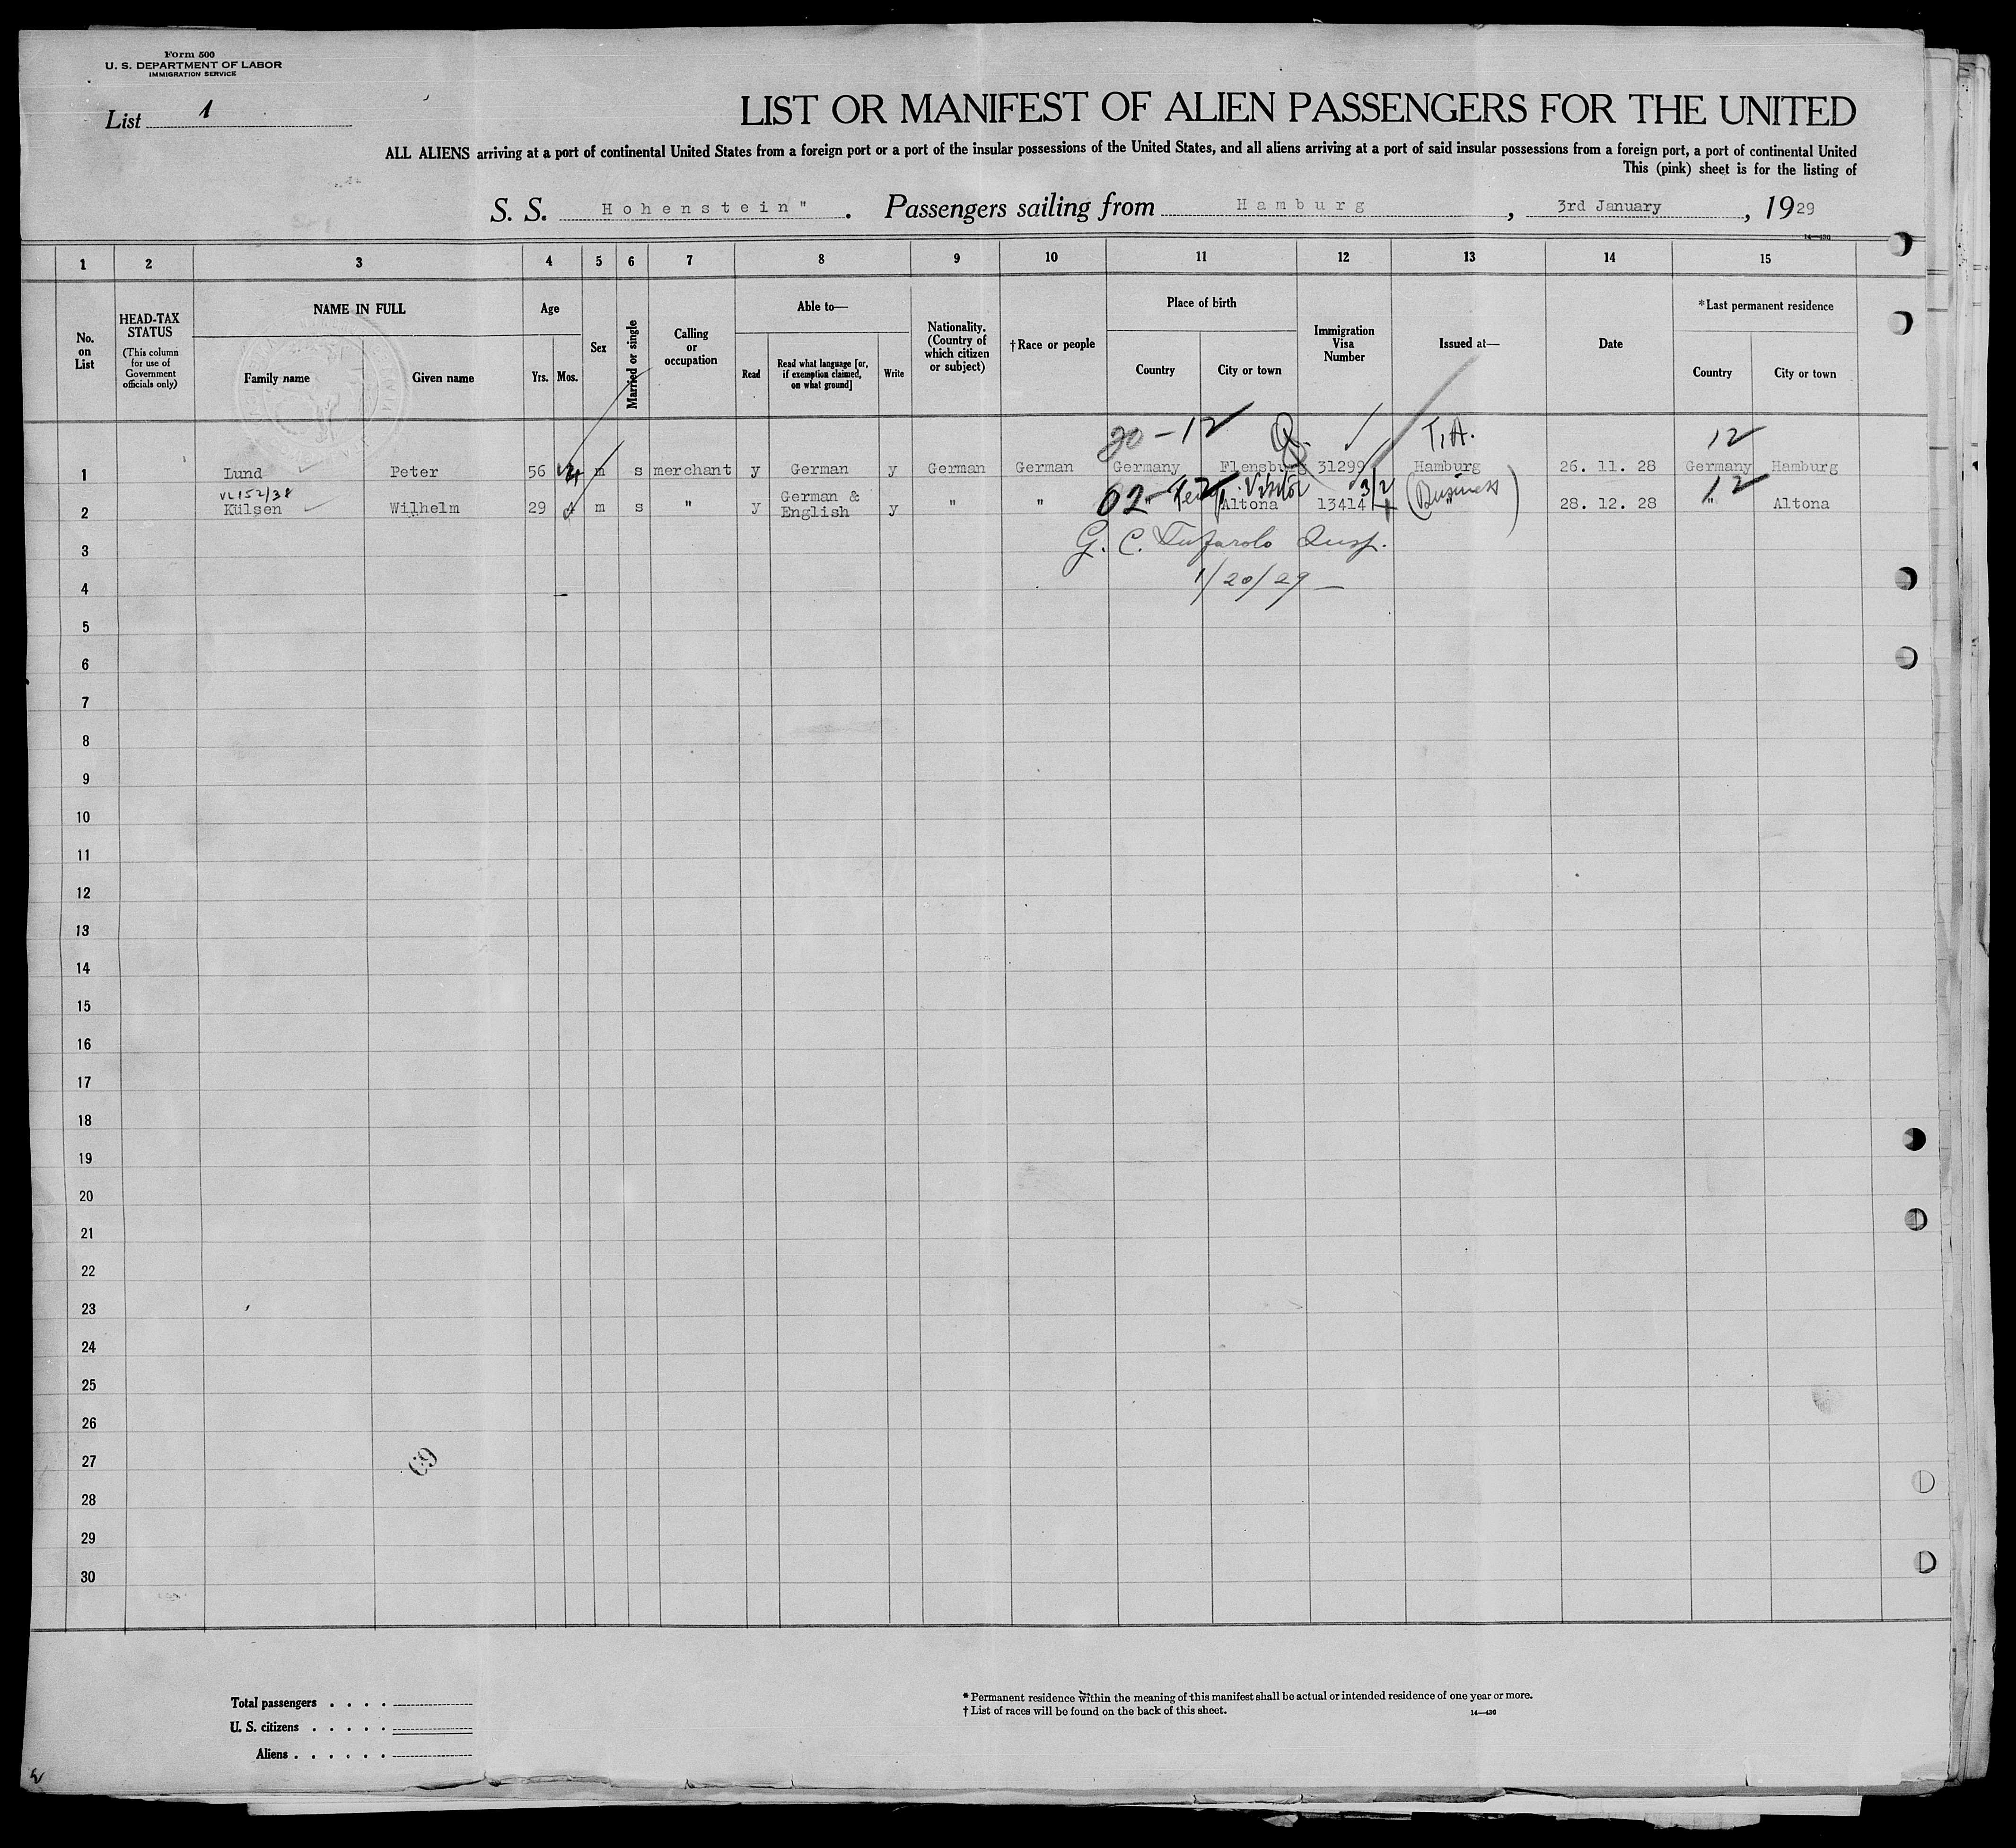 Form 500
U. S. DEPARTMENT OF LABOR
IMMIGRATION SERVICE
List 1
LIST OR MANIFEST OF ALIEN PASSENGERS FOR THE UNITED
ALL ALIENS arriving at a port of continental United States from a foreign port or a port of the insular possessions of the United States, and all aliens arriving at a port of said insular possessions from a foreign port, a port of continental United
This (pink) sheet is for the listing of
S. S. Hohenstein". Passengers sailing from Hamburg, 3rd January, 1929
14—430
1 2 3 4 5 6 7 8 9 10 11 12 13 14 15
No. on List
HEAD-TAX STATUS
(This column for use of Government officials only)
NAME IN FULL
Family name
Given name
Age
Yrs. Mos.
Sex
Married or single
Calling or occupation
Able to—
Read
Read what language [or, if exemption claimed, on what ground]
Write
Nationality. (Country of which citizen or subject)
†Race or people
Place of birth
Country
City or town
Immigration Visa Number
Issued at—
Date
*Last permanent residence
Country
City or town
20-12 T.A. 12
1 Lund Peter 56 m s merchant y German y German German Germany Flensburg 31299 Hamburg 26. 11. 28 Germany Hamburg
VL152/38
02- Visitor 3/2 (Business) 12
2 Külsen Wilhelm 29 4 m s " y German & English y " " " Altona 13414 " 28. 12. 28 " Altona
3 G. C. Insp.
4 1/20/29
5
6
7
8
9
10
11
12
13
14
15
16
17
18
19
20
21
22
23
24
25
26
27
28
29
30
69
Total passengers . . . .
U. S. citizens . . . . .
Aliens . . . . . .
* Permanent residence within the meaning of this manifest shall be actual or intended residence of one year or more.
† List of races will be found on the back of this sheet.
14—430